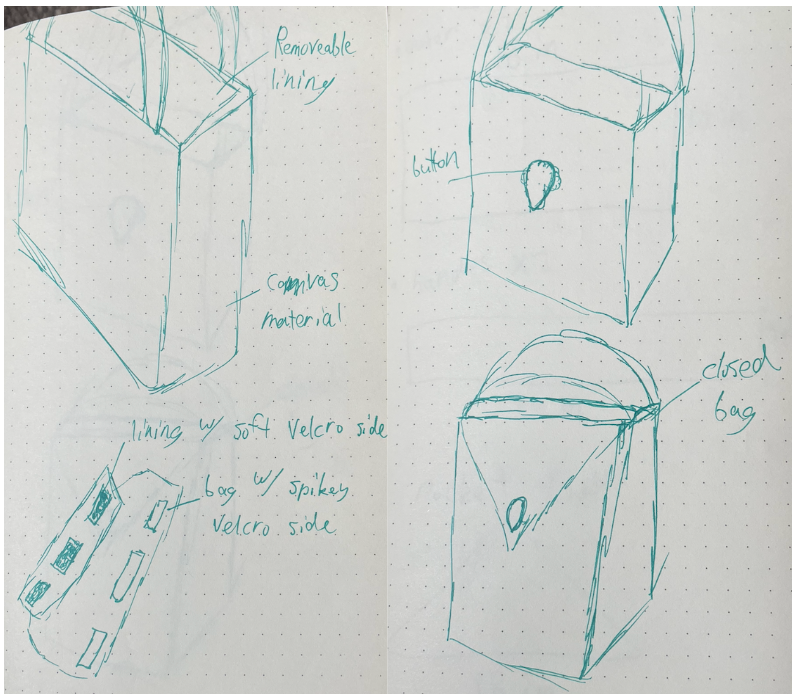 Removeable
lining
canvas
material
lining w/ soft velcro side
bag w/ spikey
velcro side
button
closed
bag